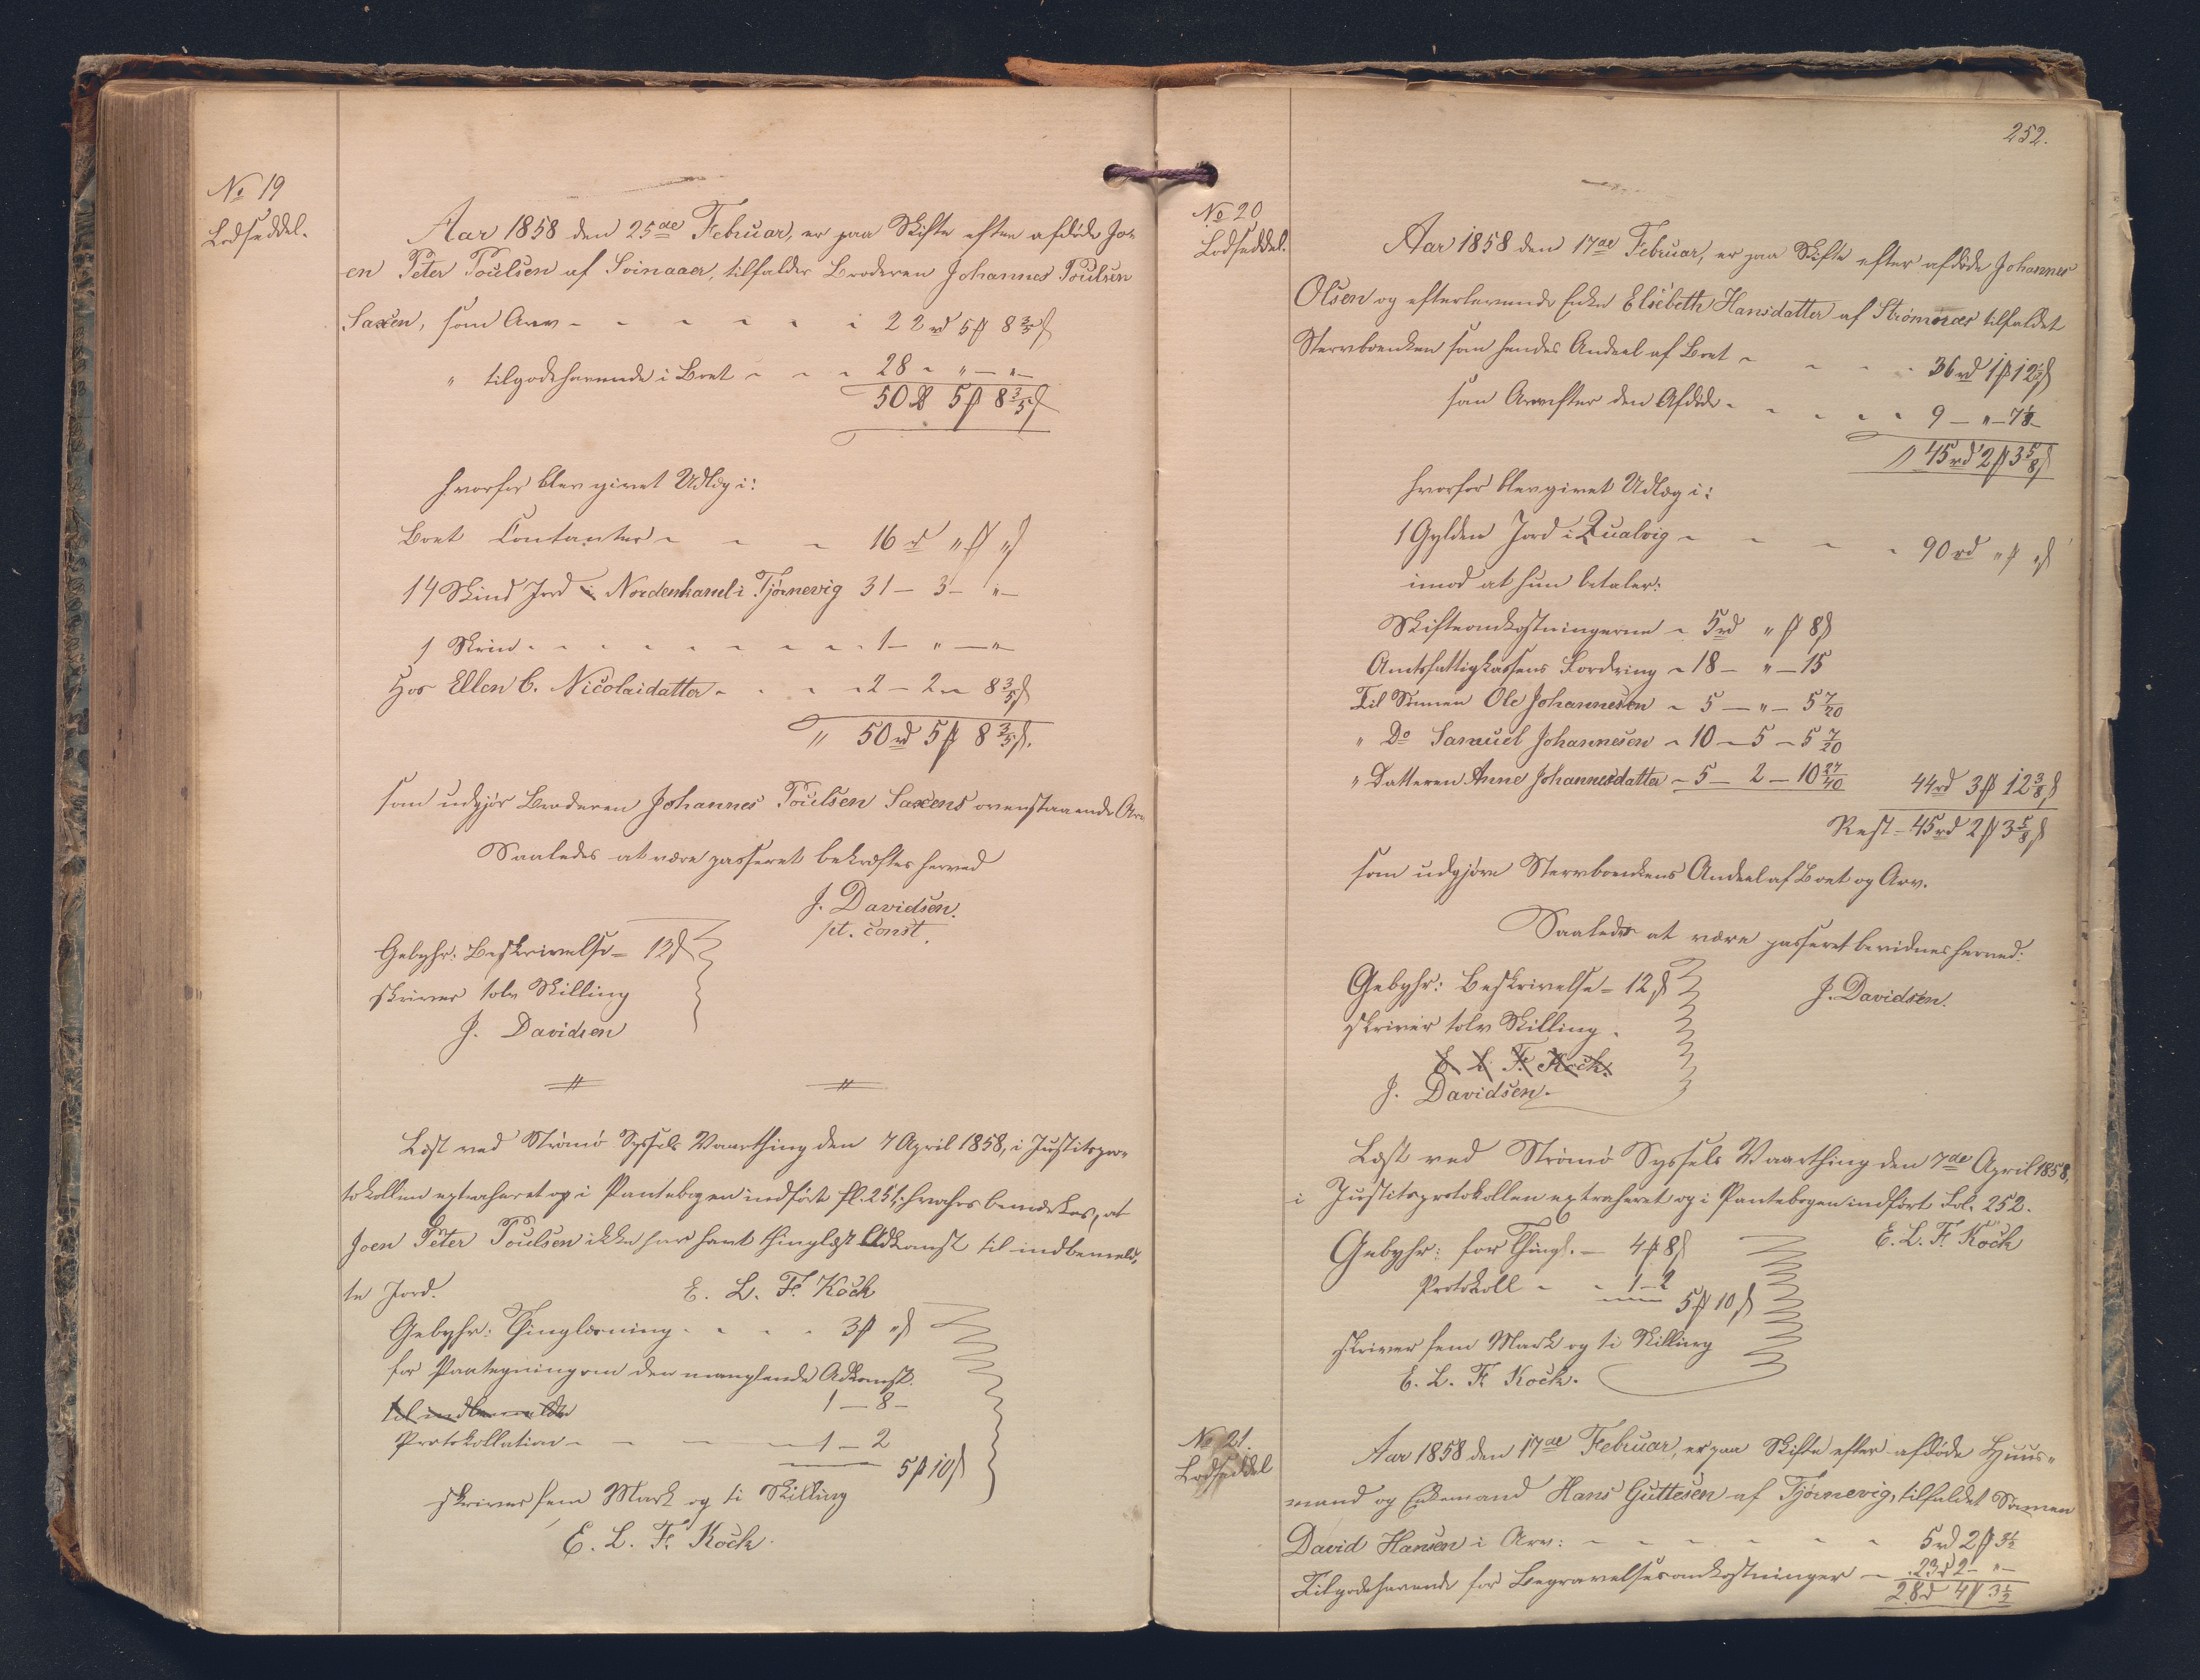 No 19
Lodseddel.
Aar 1858 den 25de Februar, er paa Skifte efter afdøde Jo-
en Peter Poulsen af Svinaaer, tilfalder Broderen Johannes Poulsen
Saxen, som Arv - - - - - - 22 rd 5 ß 8 3/5 ß
" tilgodehavende i Boet - - - 28 - " - " -
50 rd 5 ß 8 3/5 ß
hvorfor blev givet Udlæg i:
Boet Contanter - - - 16 rd " ß " ß
14 Skind Jord i Nordenhand i Tjørnevig 31 - 3 - " -
1 Skrin - - - - - - - - 1 - " - " -
Hos Ellen C. Nicolaidatter - - - 2 - 2 - 8 3/5 ß
" 50 rd 5 ß 8 3/5 ß.
som udgjør Broderen Johannes Poulsen Saxens ovenstaaende Arv
Saaledes at være passeret bekræftes herved
J. Davidsen.
pt. const.
Gebyhr: Beskrivelse - 12 ß
skriver tolv Skilling
J. Davidsen
Læst ved Strømø Syssels Vaarthing den 7 April 1858, i Justitspro-
tokollen extraheret og i Pantebogen indført fl. 251; hvorhos bemærkes, at
Joen Peter Poulsen ikke har havt thinglæst Adkomst til indbemeld-
te Jord.
E. L. F. Koch
Gebyhr: Thinglæsning - - - - 3 ß " ß
for Paategning om den manglende Adkomst.
til indbemeldte
1 - 8 -
Protokollation - - - - 1 - 2
5 ß 10 ß
skriver fem Mark og ti Skilling
E. L. F. Koch.
252.
No 20
Lodseddel.
Aar 1858 den 17de Februar, er paa Skifte efter afdøde Johannes
Olsen og efterlevende Enke Elsebeth Hansdatter af Strømnæs tilfaldet
Stervboenken som hendes Andeel af Boet - - - - 36 rd 1 ß 12 1/2 ß
som Arv efter den Afdøde - - - - - 9 - " - 7 1/8 -
" 45 rd 2 ß 3 5/8 ß
hvorfor blev givet Udlæg i:
1 Gylden Jord i Qualvig - - - - 90 rd " ß " ß
imod at hun betaler:
Skifteomkostningerne - 5 rd " ß 8 ß
Amtsfattigkassens Fordring - 18 - " - 15
Til Sønnen Ole Johannesen - 5 - " - 5 7/20
" Do Samuel Johannesen - 10 - 5 - 5 7/20
" Datteren Anne Johannesdatter - 5 - 2 - 10 27/40
44 rd 3 ß 12 3/8 ß
Rest - 45 rd 2 ß 3 5/8 ß
som udgjøre Stervboenkens Andeel af Boet og Arv.
Saaledes at være passeret bevidnes herved:
J. Davidsen.
Gebyhr: Beskrivelse - 12 ß
skriver tolv Skilling.
E. L. F. Koch.
J. Davidsen.
Læst ved Strømø Syssels Vaarthing den 7de April 1858,
i Justitsprotokollen extraheret og i Pantebogen indført Fol. 252.
E. L. F. Koch
Gebyhr: for Thingl. - 4 ß 8 ß
Protokoll - - 1 - 2
5 ß 10 ß
skriver fem Mark og ti Skilling
E. L. F. Koch.
No 21.
Lodseddel
Aar 1858 den 17de Februar, er paa Skifte efter afdøde Huus-
mand og Enkemand Hans Guttesen af Tjørnevig, tilfaldet Sønnen
David Hansen i Arv: - - - - - - 5 rd 2 ß 3 1/2
Tilgodehavende for Begravelsesomkostninger - 23 rd 2 - " -
28 rd 4 ß 3 1/2